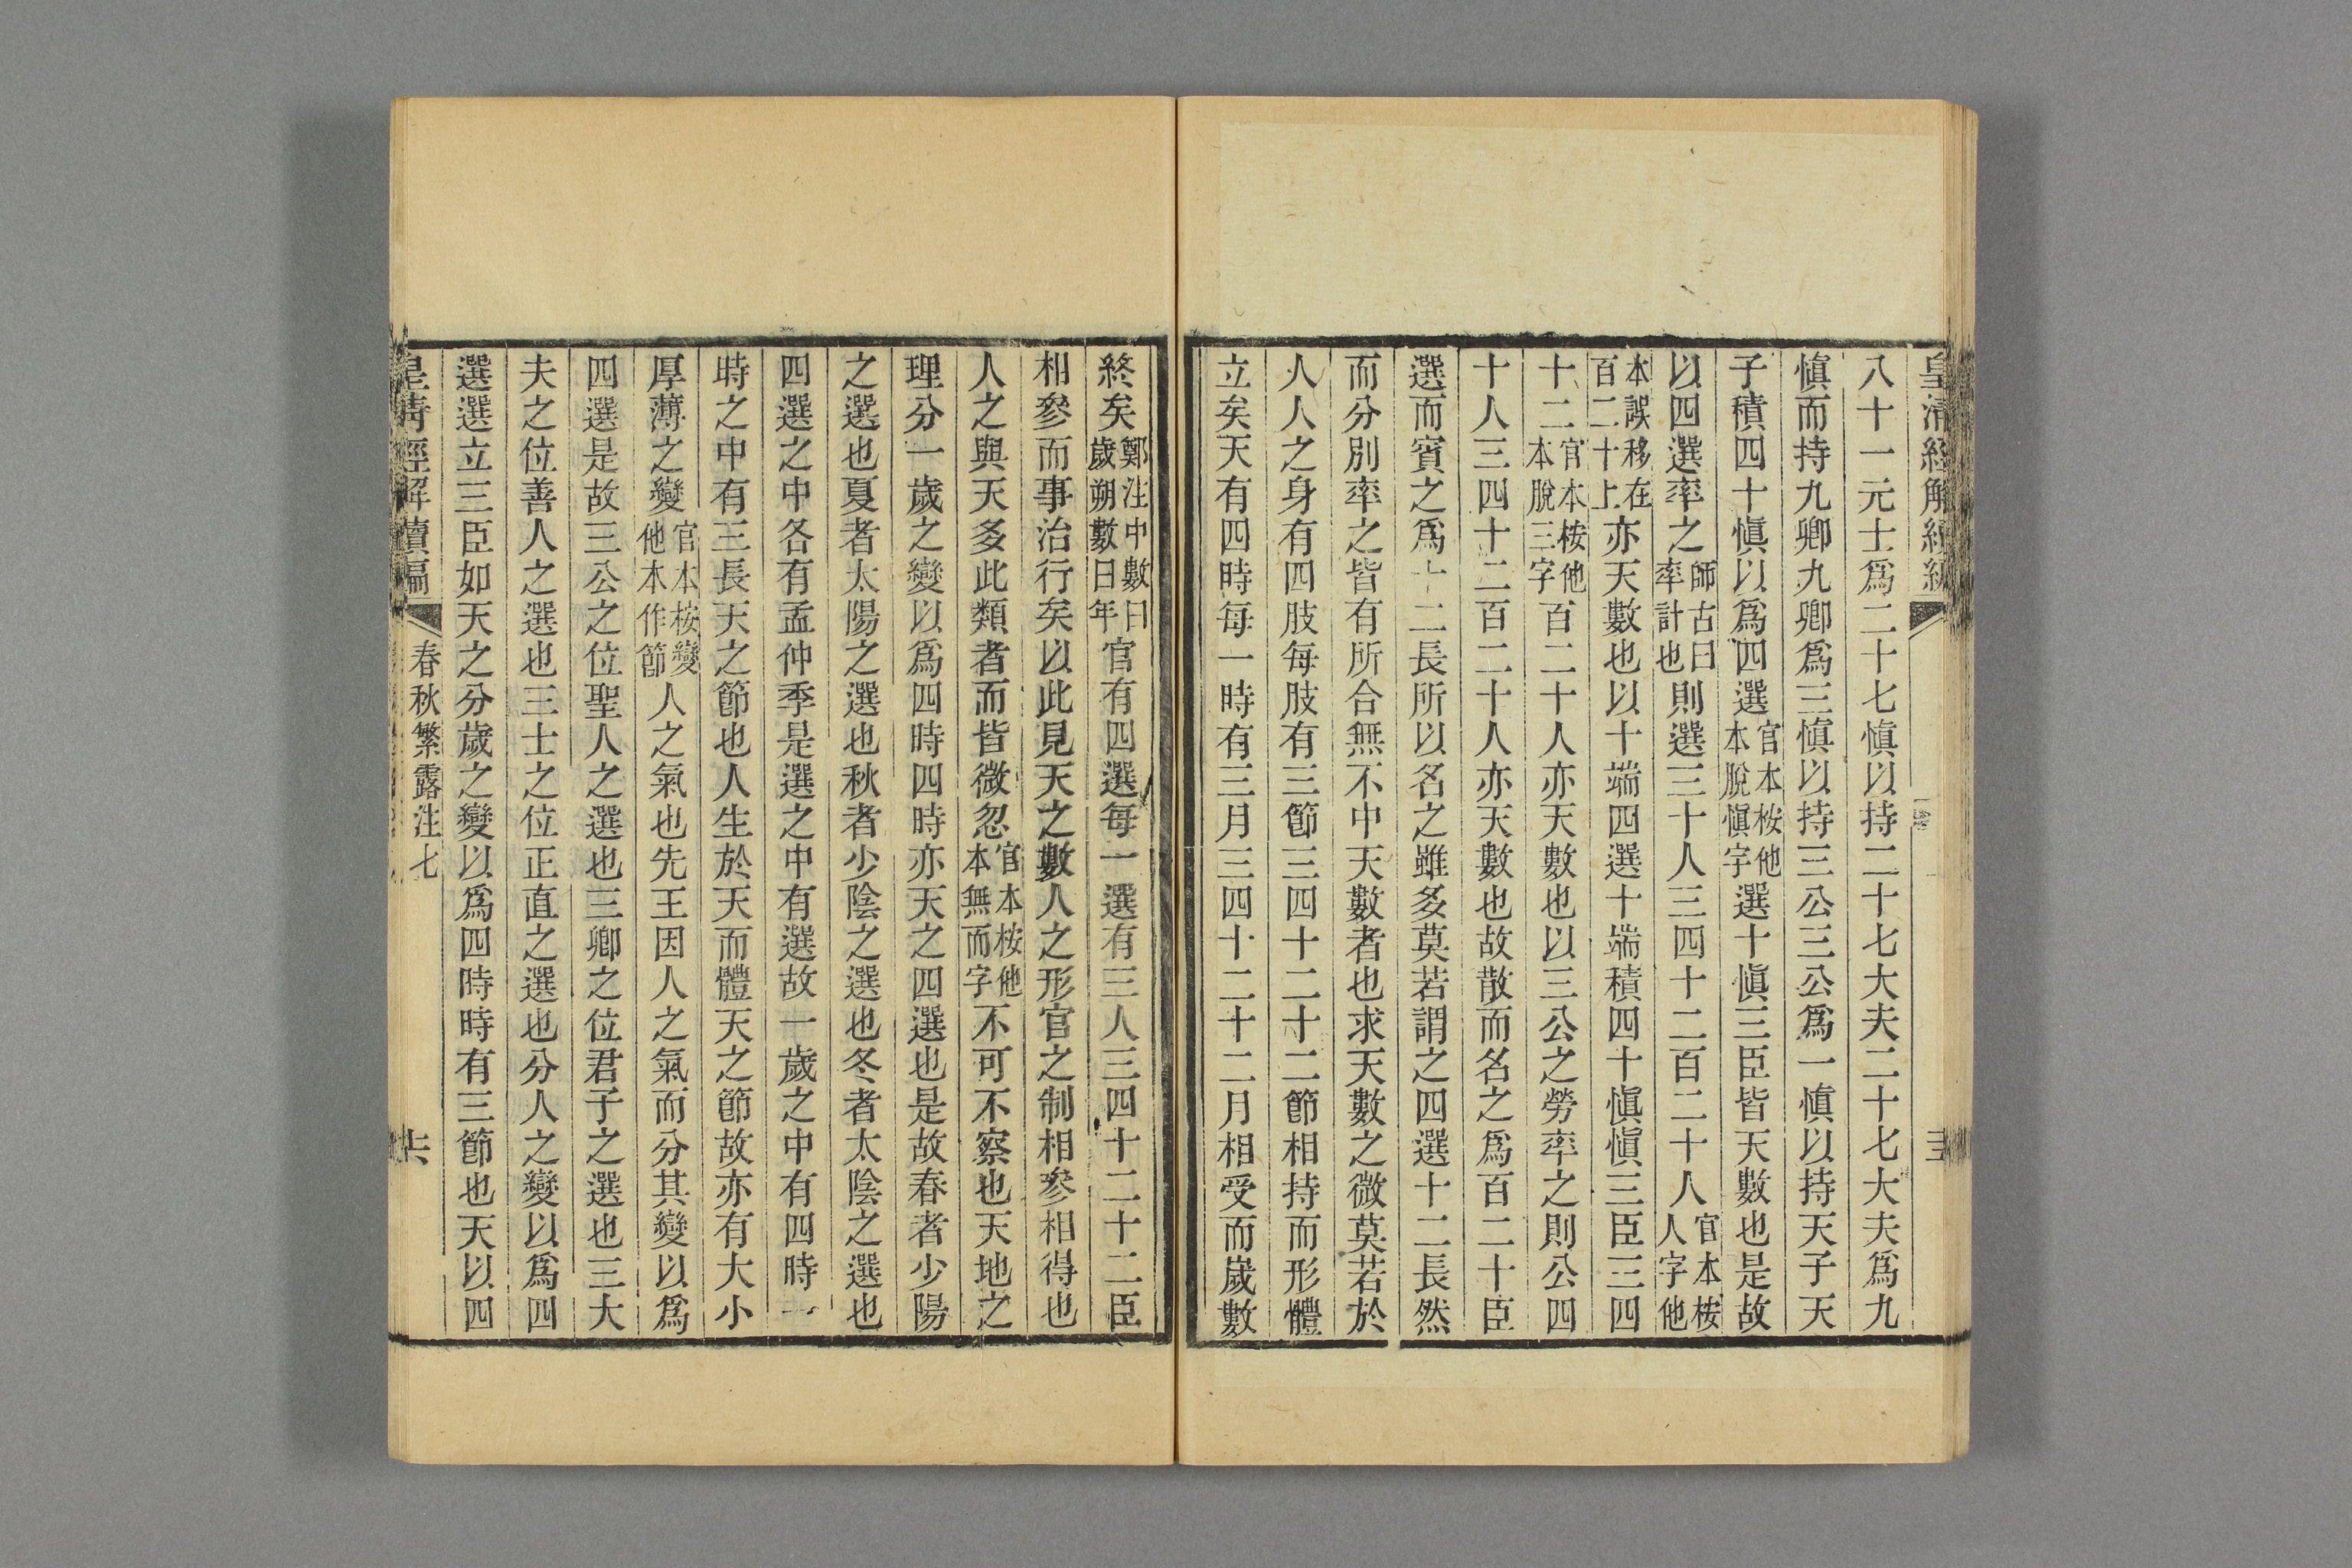 皇清經解續編
八十一元士爲二十七愼以持二十七大夫二十七大夫爲九
愼而持九卿九卿爲三愼以持三公三公爲一愼以持天子天
子積四十愼以爲四選官本桉他本脫愼字選十愼三臣皆天數也是故
以四選率之師古曰率計也則選三十人三四十二百二十人官本桉人字他
本誤移在百二十上亦天數也以十端四選十端積四十愼愼三臣三四
十二官本桉他本脫三字百二十人亦天數也以三公之勞率之則公四
十人三四十二百二十人亦天數也故散而名之爲百二十臣
選而賓之爲十二長所以名之雖多莫若謂之四選十二長然
而分別率之皆有所合無不中天數者也求天數之微莫若於
人人之身有四肢每肢有三節三四十二十二節相持而形體
立矣天有四時每一時有三月三四十二十二月相受而歲數
終矣鄭注中數曰歲朔數曰年官有四選每一選有三人三四十二十二臣
相參而事治行矣以此見天之數人之形官之制相參相得也
人之與天多此類者而皆微忽官本桉他本無而字不可不察也天地之
理分一歲之變以爲四時四時亦天之四選也是故春者少陽
之選也夏者太陽之選也秋者少陰之選也冬者太陰之選也
四選之中各有孟仲季是選之中有選故一歲之中有四時一
時之中有三長天之節也人生於天而體天之節故亦有大小
厚薄之變官本桉變他本作節人之氣也先王因人之氣而分其變以爲
四選是故三公之位聖人之選也三卿之位君子之選也三大
夫之位善人之選也三士之位正直之選也分人之變以爲四
選選立三臣如天之分歲之變以爲四時時有三節也天以四
皇清經解續編 春秋繁露注七 六